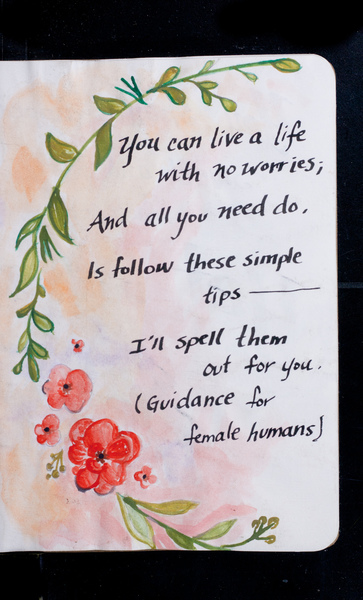 You can live a life
with no worries;
And all you need do,
Is follow these simple
tips —
I'll spell them
out for you.
(Guidance for
female humans)